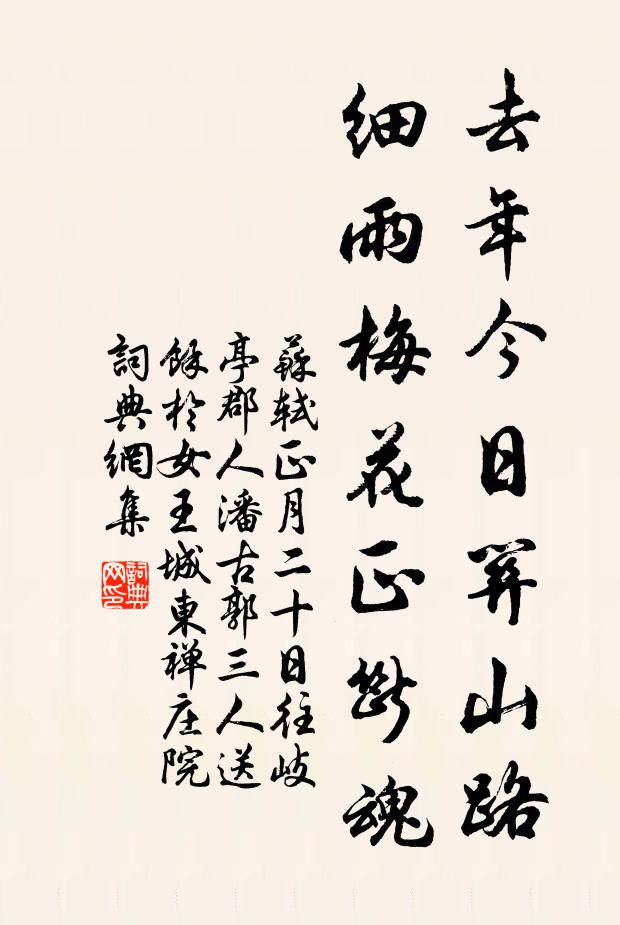 去年今日關山路
細雨梅花正斷魂
蘇軾正月二十日往岐
亭郡人潘古郭三人送
餘於女王城東禅庄院
詞典網集
詞典網印